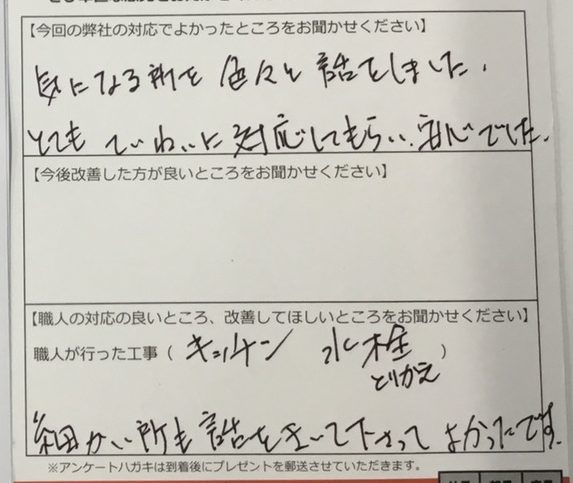 【今回の弊社の対応でよかったところをお聞かせください】
気になる所を色々と話をしました.
とても ていねいに対応してもらい.安心でした.
【今後改善した方が良いところをお聞かせください】
【職人の対応の良いところ、改善してほしいところをお聞かせください】
職人が行った工事 ( キッチン 水栓 )
とりかえ
細かい所も話をきいて下さってよかったです.
※アンケートハガキは到着後にプレゼントを郵送させていただきます。